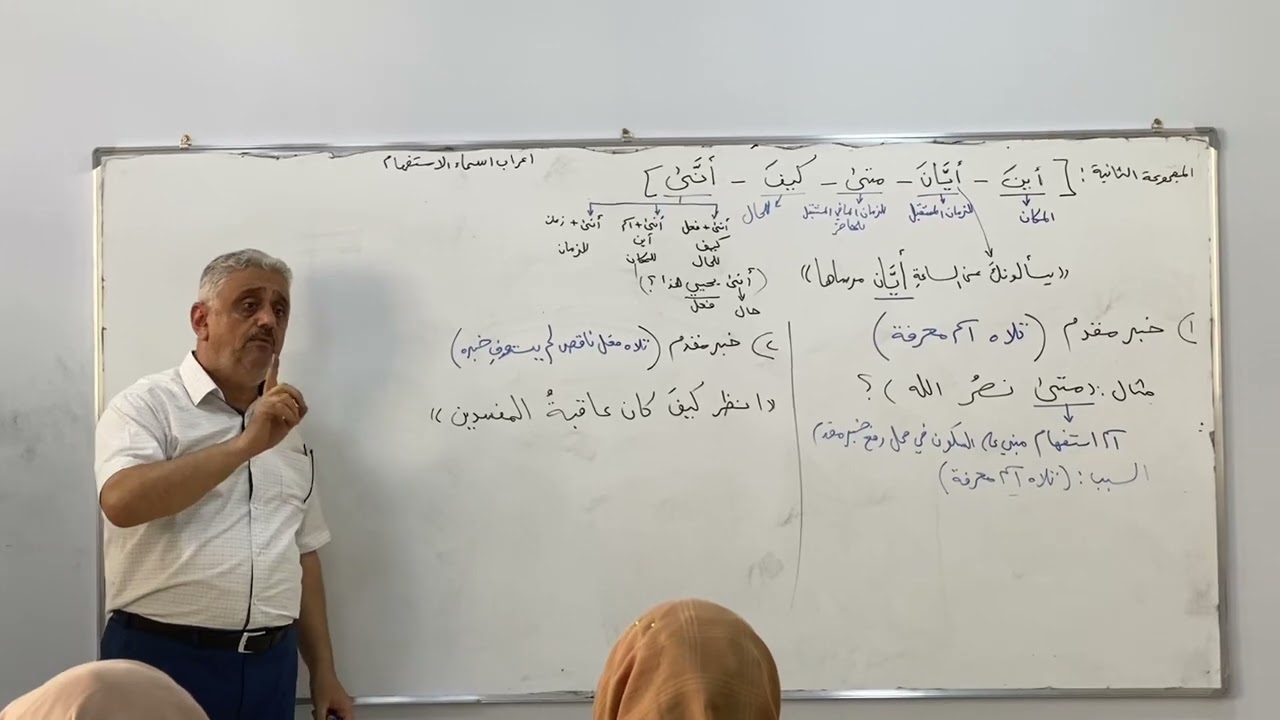 اعراب اسماء الاستفهام
المجموعة الثانية : [ أينَ - أيَّانَ - متىٰ - كيفَ - أنَّىٰ ]
المكان
للزمان المستقبل
للزمان الماضي المستقبل
للحال
أنّىٰ + فعل
كيف
للحال
أنّىٰ + اسم
أين
للمكان
أنّىٰ + زمان
للزمان
(أنّىٰ يحيي هذا ؟)
حال
فعل
«يسألونكَ عن الساعةِ أيَّان مرساها»
١) خبر مقدم (تلاه اسم معرفة)
مثال : (متىٰ نصرُ الله) ؟
اسم استفهام مبني على السكون في محل رفع خبر مقدم
السبب : (تلاه اسم معرفة)
٢) خبر مقدم (تلاه فعل ناقص لم يستوفِ خبره)
«انظر كيفَ كان عاقبةُ المفسدين»